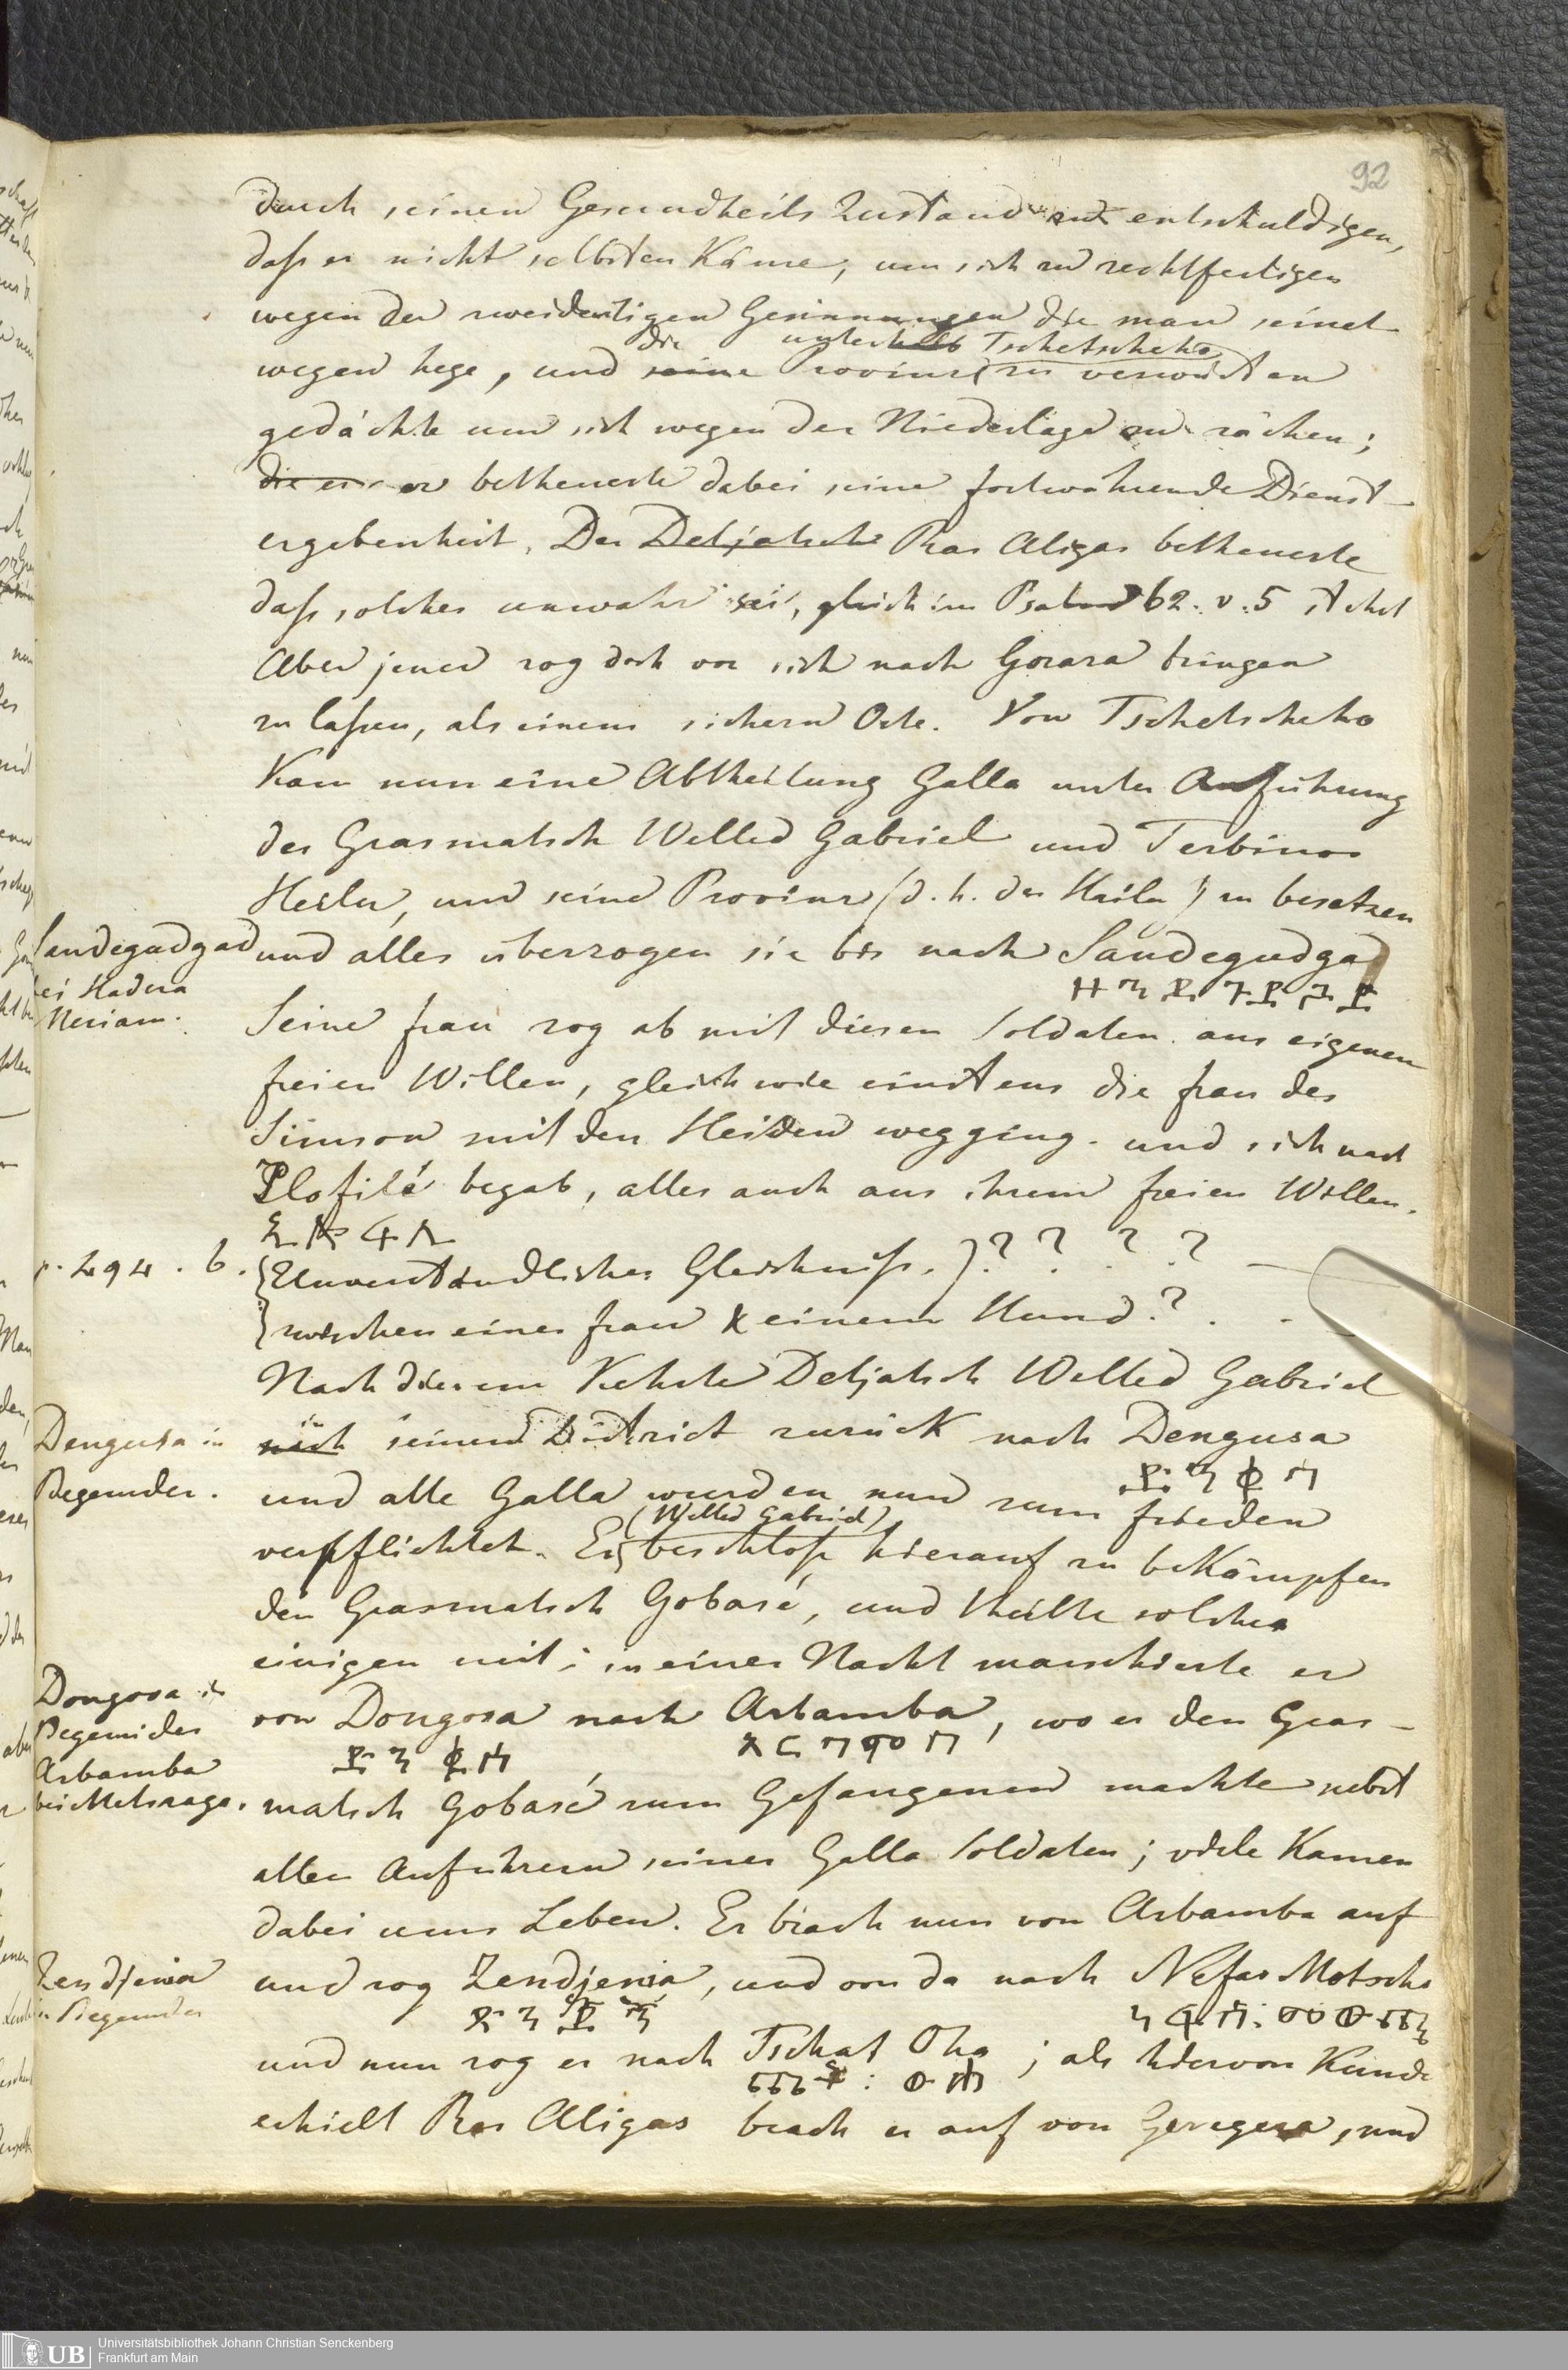 92
durch seinen Gesundheits Zustand zu entschuldigen,
daß er nicht selbsten käme, um sich zu rechtfertigen
wegen der zweideutigen Gesinnungen die man seinet
die unterhalb Tschetscheho
wegen hege, und seine Provinz zu verwüsten
gedächte um sich wegen der Niederlage zu rächen;
die er er betheuerte dabei seine fortwährende Dienst
ergebenheit. Der Detjatsch Ras Aligas betheuerte
daß solches unwahr sei, gleich im Psalm 62. v. 5 steht
Aber jener zog doch vor sich nach Gorara bringen
zu laßen, als einem sichern Orte. Von Tschetscheho
kam nun eine Abtheilung Galla unter Anführung
des Grasmatsch Welled Gabriel und Terbinos
Heilu, um seine Provinz (d. h. des Hailu) zu besetzen
Sandegudgad und alles überzogen sie bis nach Sandegudgad
bei Madera
ዘንደጉድጓድ
Meriam.
Seine frau zog ab mit diesen Soldaten aus eigenen
freien Willen, gleich wie einstens die frau des
Simson mit den Heiden wegging. und sich nach
Elofilé begab, alles auch aus ihrem freien Willen.
p. 294. b. (Unverständliches Gleichniß.)? ? ? ?
zwischen einer frau & einem Hund?
Nach diesem kehrte Detjatsch Welled Gabriel
Dengusa in
in
nach seinen District zurück nach Dengusa
Begemder.
ደንቁሳ
und alle Galla wurden nun zum frieden
(Welled Gabriel)
verpflichtet. Er beschloß hierauf zu bekämpfen
den Grasmatsch Gobasé, und theilte solches
einigen mit; in einer Nacht marschierte er
Dongosa in
Begemider
von Dongosa nach Arbamba, wo er den Gras-
ደንቆሳ
አርባምባ
Arbamba
bei Metsraga.
matsch Gobasé zum Gefangenen machte nebst
allen Anführern seiner Galla Soldaten; viele kamen
dabei ums Leben. Er brach nun von Arbamba auf
Zendjenia
in Begemder
und zog Zendjenia, und von da nach Nefas Motscha
ነፋስ፡መውጫ
und nun zog er nach Tschat Oha ; als hiervon Kunde
ጫት፡ውሐ
erhielt Ras Aligas brach er auf von Geregera, und
Universitätsbibliothek Johann Christian Senckenberg
Frankfurt am Main
UB